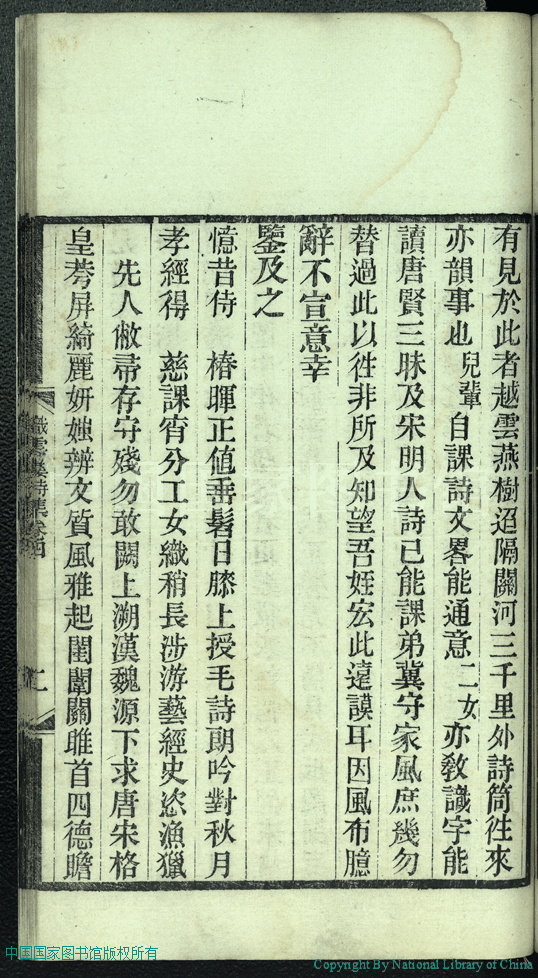 有見於此者越雲燕樹迢隔關河三千里外詩筒徃來
亦韻事也兒輩自課詩文畧能通意二女亦敎識字能
讀唐賢三昧及宋明人詩已能課弟冀守家風庶幾勿
替過此以徃非所及知望吾姪宏此遠謨耳因風布臆
辭不宣意幸
鑒及之
憶昔侍 椿暉正値垂髫日膝上授毛詩朗吟對秋月
孝經得 慈課宵分工女織稍長涉游藝經史恣漁獵
先人敝帚存守殘勿敢闕上溯漢魏源下求唐宋格
皇荂屏綺麗妍媸辨文質風雅起閨闈關雎首四德瞻
織雲樓詩集卷四
二
中国国家图书馆版权所有
Copyright By National Library of China